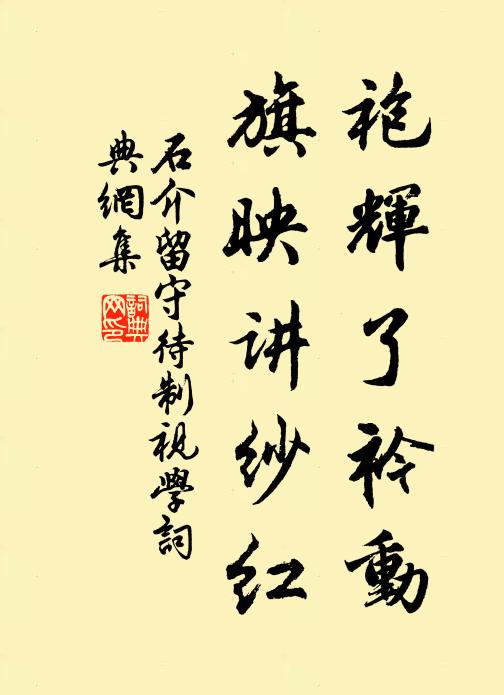 袍輝了衿動
旗映讲纱红
石介留守待制視學詞
典網集
詞典
网印